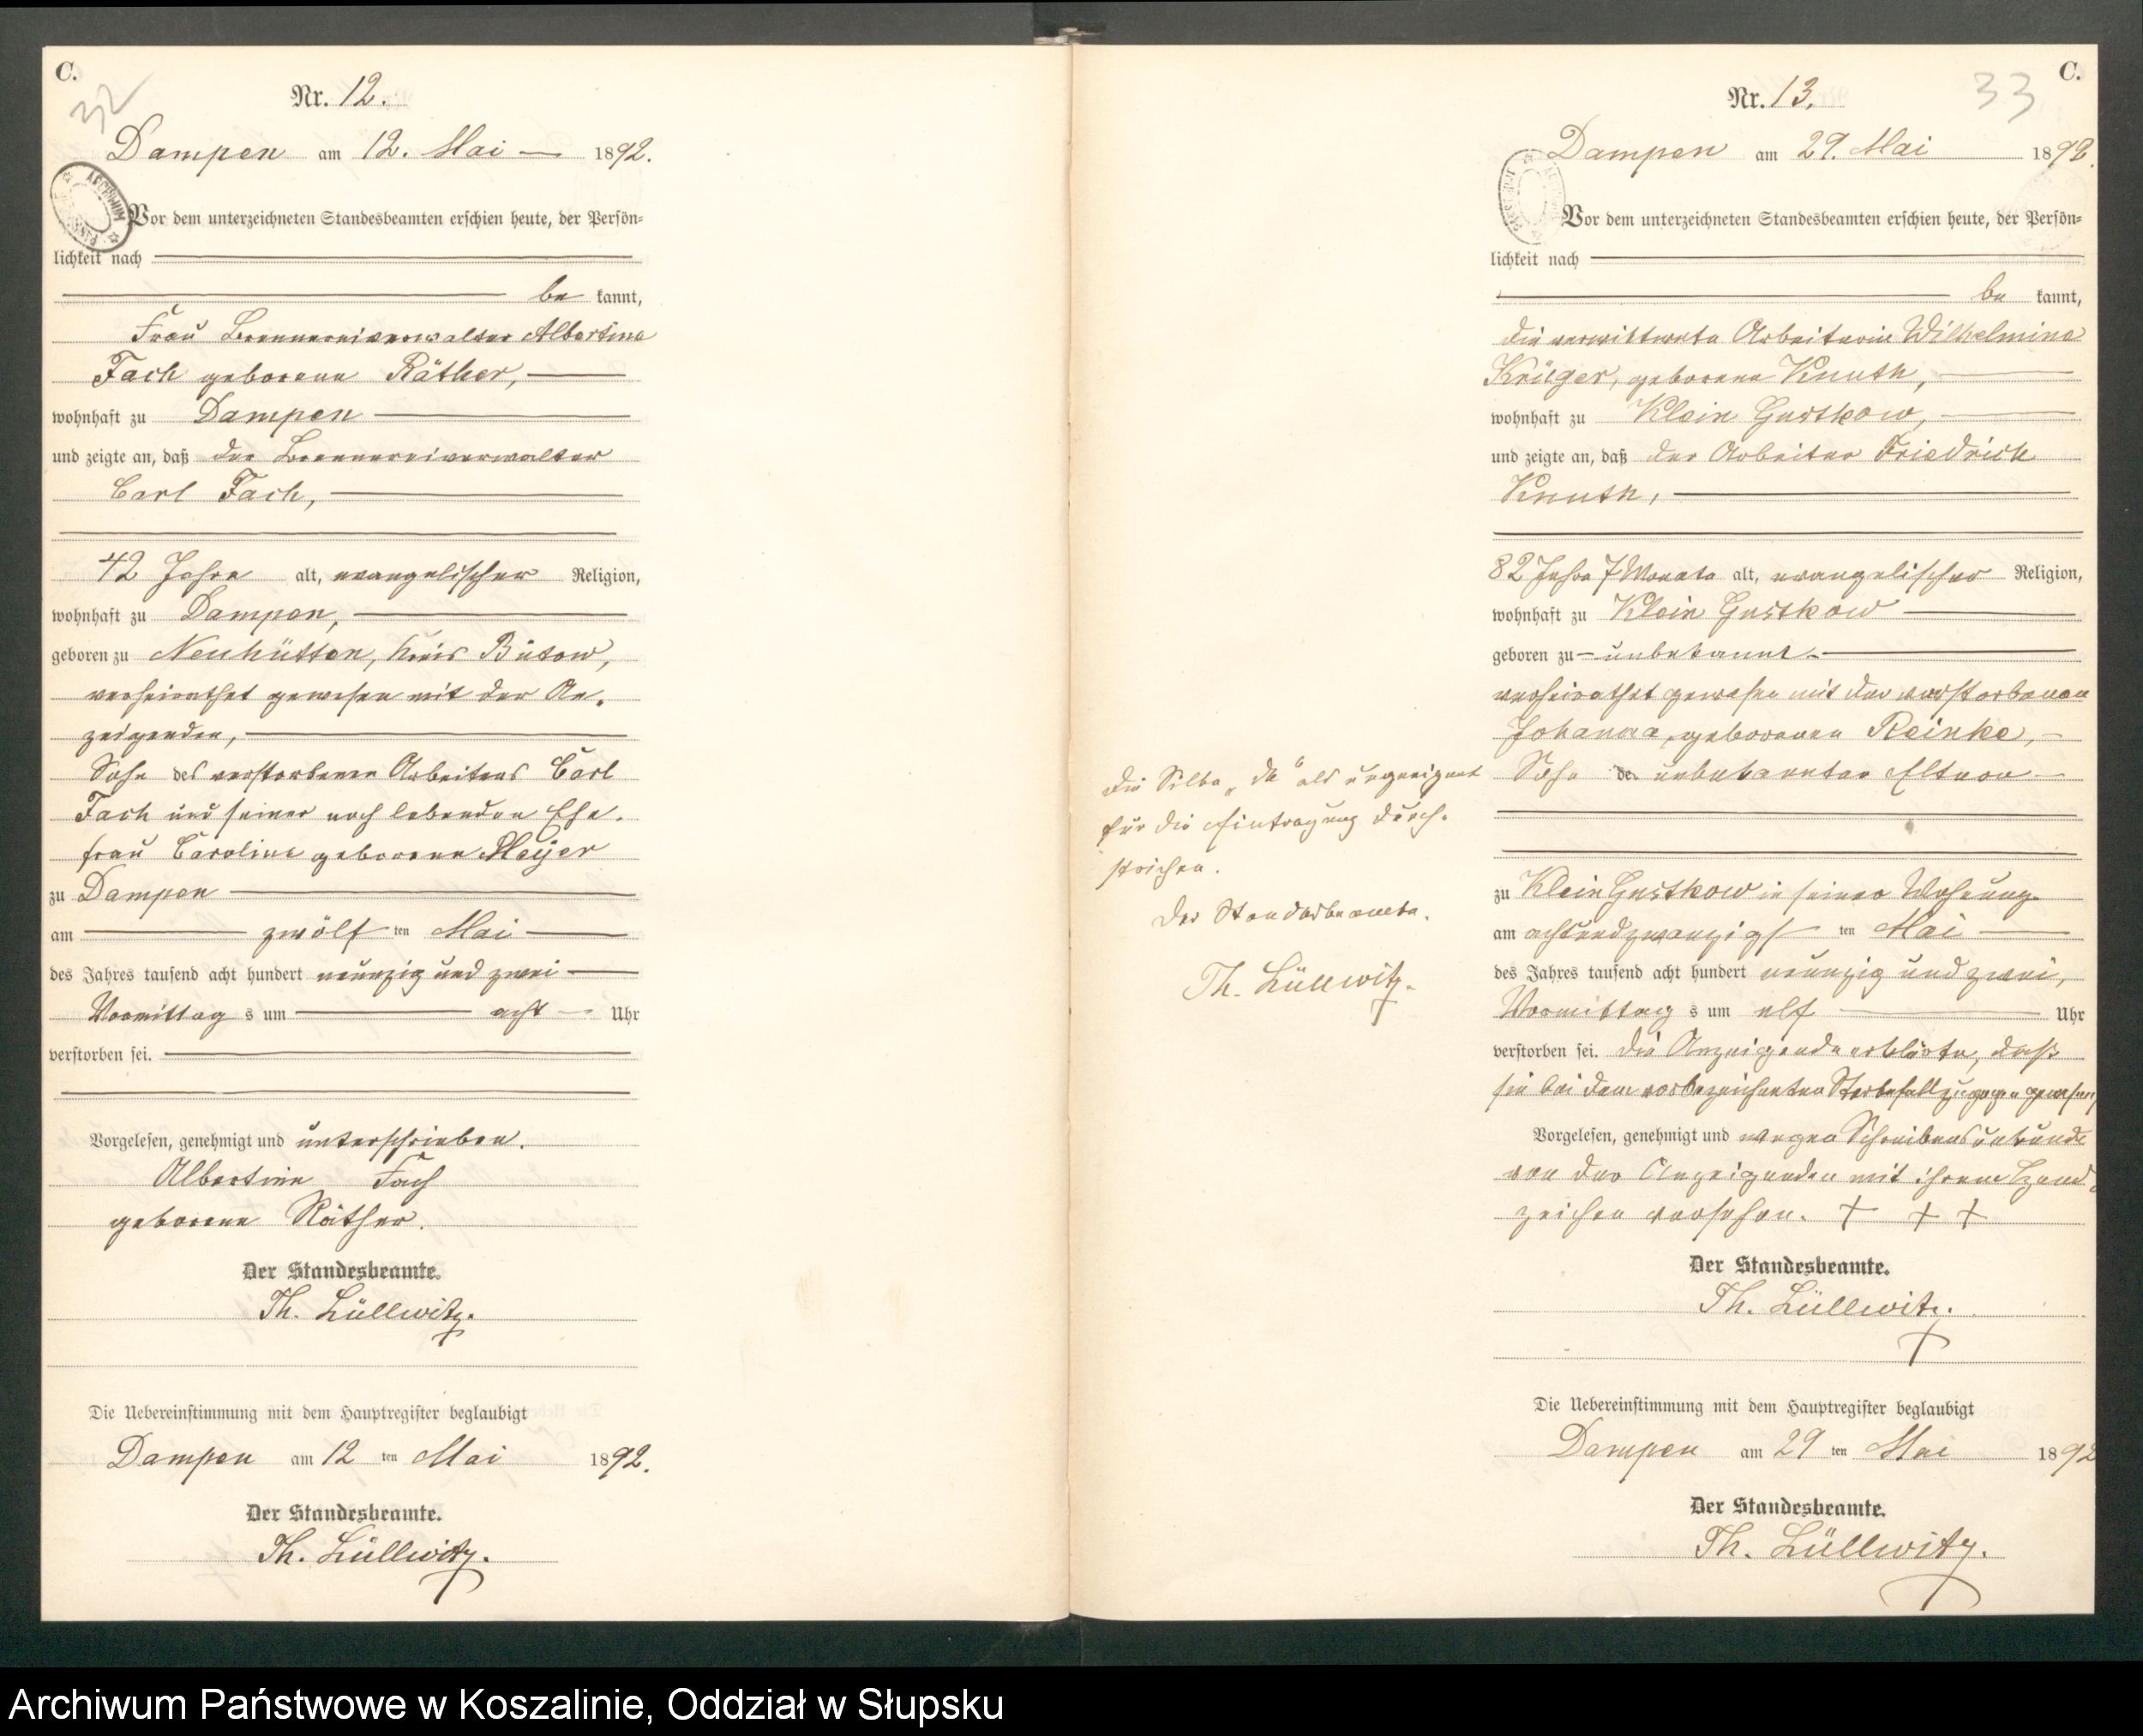 C.
32
Nr. 12.
Dampen am 12. Mai 1892.
ARCHIWUM
Vor dem unterzeichneten Standesbeamten erschien heute, der Persön-
lichkeit nach
be kannt,
Frau Brennereiverwalter Albertine
Fach geborene Räther,
wohnhaft zu Dampen
und zeigte an, daß der Brennereiverwalter
Carl Fach,
42 Jahre alt, evangelischer Religion,
wohnhaft zu Dampen,
geboren zu Neuhütten, Kreis Bütow,
verheirathet gewesen mit der An-
zeigenden,
Sohn des verstorbenen Arbeiters Carl
Fach und seiner noch lebenden Ehe-
frau Caroline geborene Meyer
zu Dampen
am zwölf ten Mai
des Jahres tausend acht hundert neunzig und zwei
Vormittag s um acht Uhr
verstorben sei.
Vorgelesen, genehmigt und unterschrieben.
Albertine Fach
geborene Räther.
Der Standesbeamte.
Th. Lüllwitz.
Die Uebereinstimmung mit dem Hauptregister beglaubigt
Dampen am 12 ten Mai 1892.
Der Standesbeamte.
Th. Lüllwitz.
C.
33
Nr. 13.
Dampen am 29. Mai 1892.
Vor dem unterzeichneten Standesbeamten erschien heute, der Persön-
lichkeit nach
be kannt,
die verwittwete Arbeiterin Wilhelmine
Krüger, geborene Knuth,
wohnhaft zu Klein Gustkow,
und zeigte an, daß der Arbeiter Friedrich
Knuth,
82 Jahre 7 Monate alt, evangelischer Religion,
wohnhaft zu Klein Gustkow
geboren zu unbekannt.
verheirathet gewesen mit der verstorbenen
Johanna, geborenen Reinke,
Sohn de unbekannter Eltern
zu Klein Gustkow in seiner Wohnung
am achtundzwanzigst ten Mai
des Jahres tausend acht hundert neunzig und zwei,
Vormittag s um elf Uhr
verstorben sei. Die Anzeigende erklärte, daß
sie bei dem vorbezeichneten Sterbefall zugegen gewesen,
Vorgelesen, genehmigt und wegen Schreibensunkunde
von der Anzeigenden mit ihrem Hand-
zeichen versehen. + + +
Der Standesbeamte.
Th. Lüllwitz.
Die Uebereinstimmung mit dem Hauptregister beglaubigt
Dampen am 29 ten Mai 1892
Der Standesbeamte.
Th. Lüllwitz.
Die Silbe „de" als ungeeignet
für die Eintragung durch-
strichen.
Der Standesbeamte.
Th. Lüllwitz.
Archiwum Państwowe w Koszalinie, Oddział w Słupsku